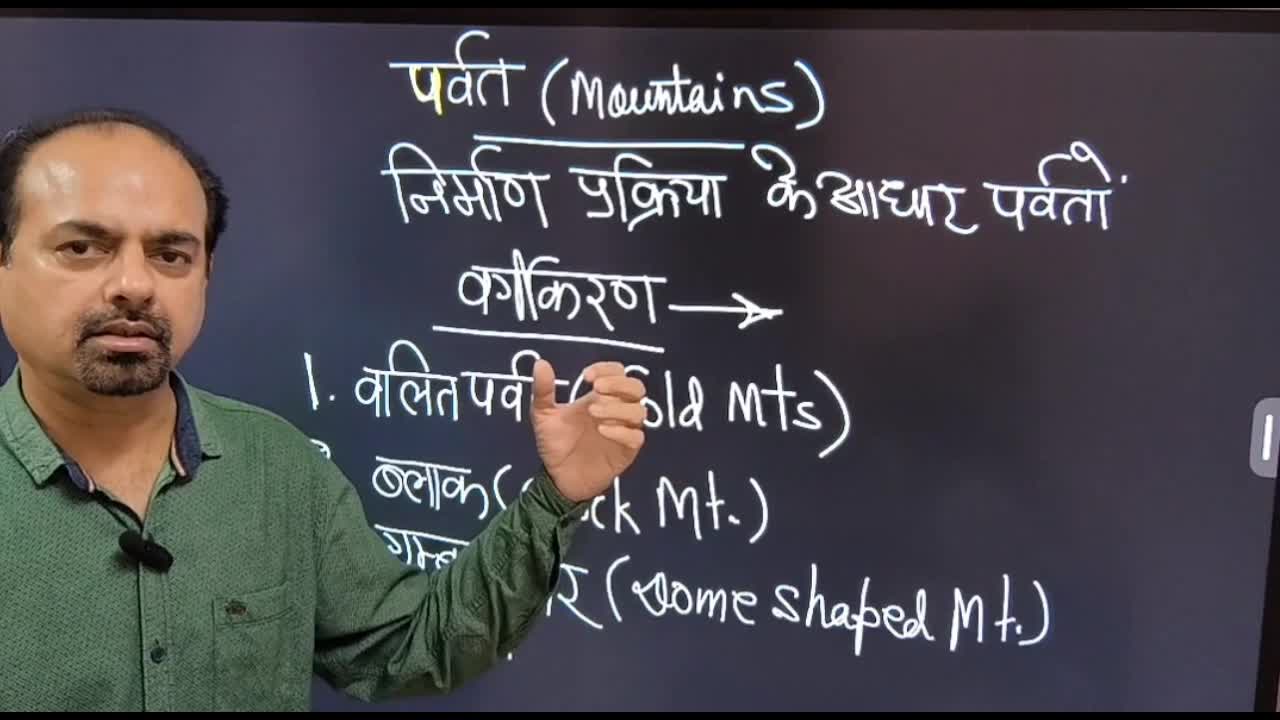 पर्वत (Mountains)
निर्माण प्रक्रिया के आधार पर्वतों
वर्गीकरण →
1. वलित पर्वत (Fold Mts)
ब्लाक ( Mt.)
(Dome shaped Mt.)